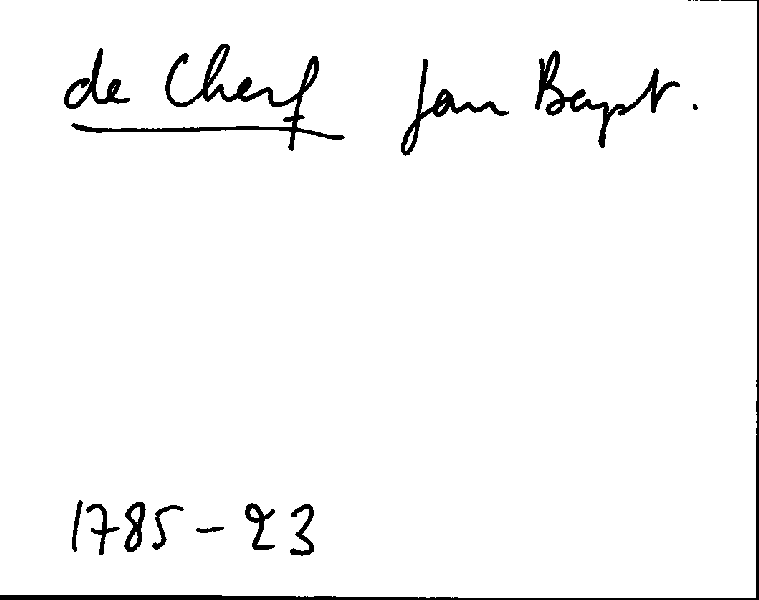 de Cherf Jan Bapt.
1785-23